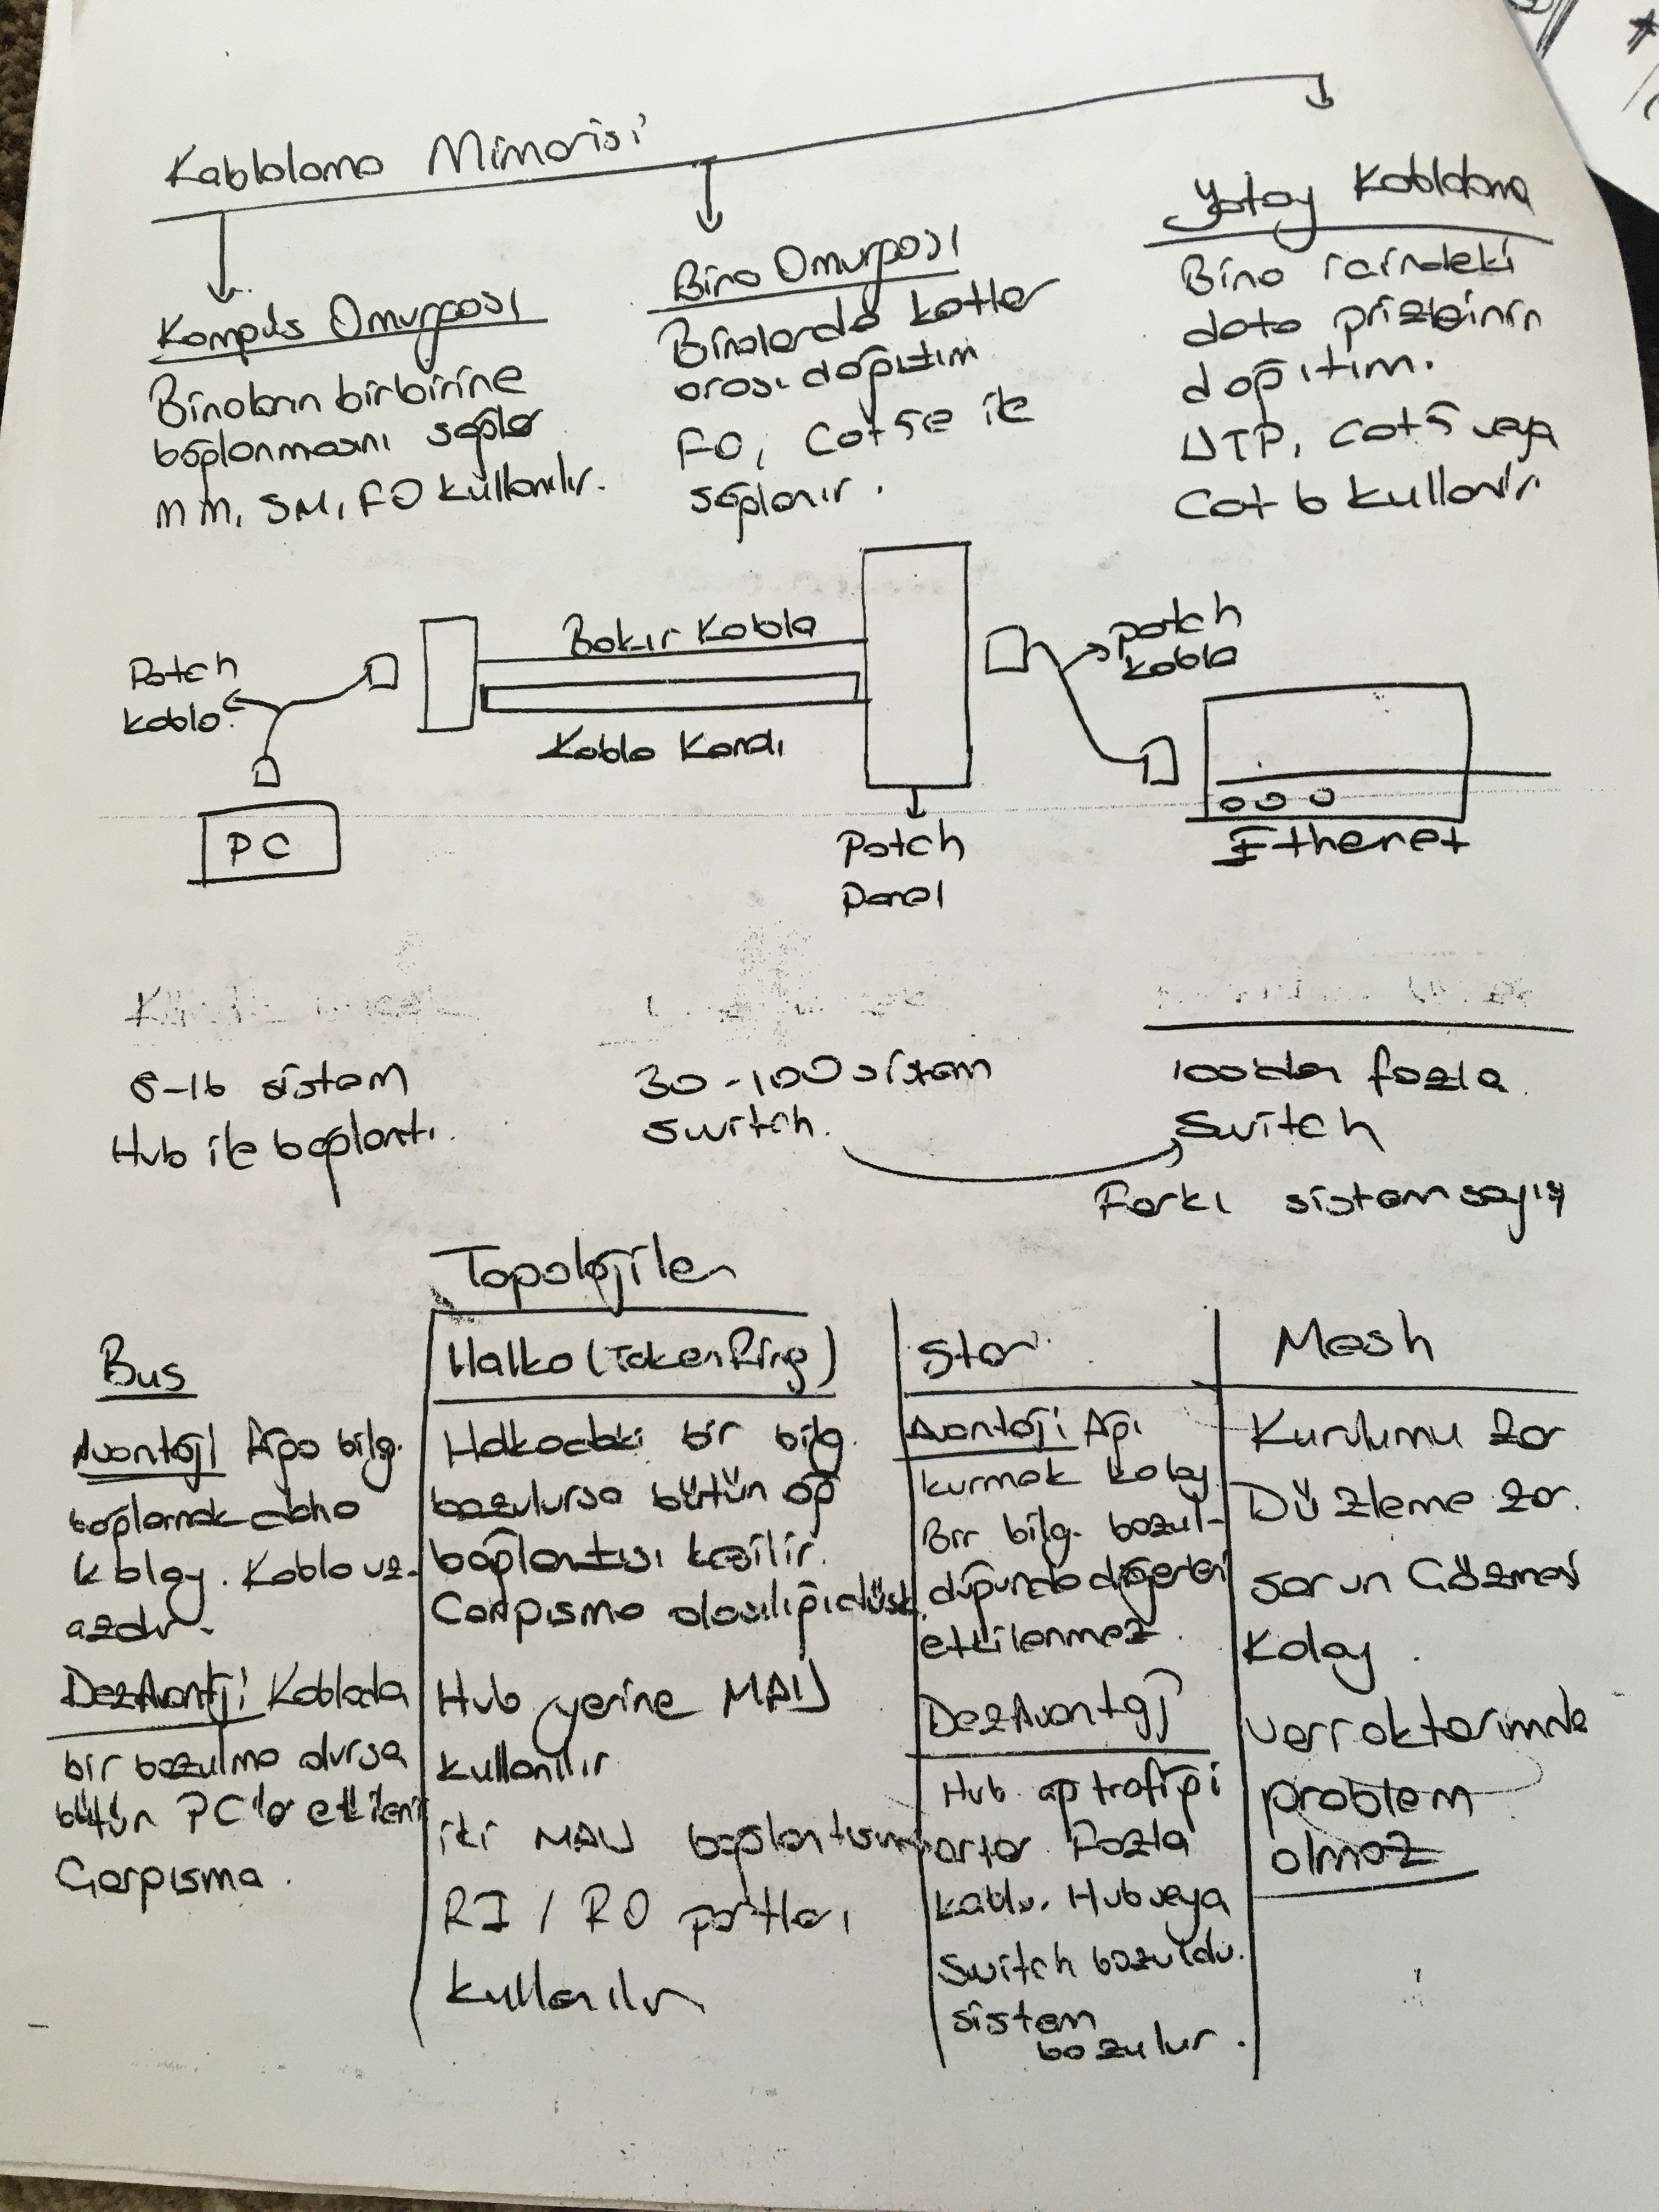 Kablolama Mimarisi
Kampüs Omurgası
Binaların birbirine
bağlanmasını sağlar
MM, SM, FO kullanılır.
Bina Omurgası
Binalarda katlar
arası dağıtım
FO, Cat 5e ile
sağlanır.
Yatay Kablolama
Bina içindeki
data prizlerinin
dağıtım.
UTP, cat 5 veya
Cat 6 kullanılır
Patch
kablo
PC
Bakır Kablo
Kablo Kanalı
Patch
Panel
patch
kablo
Ethernet
8-16 sistem
Hub ile bağlantı.
30-100 sistem
switch.
100'den fazla
Switch
Farkı sistem sayısı
Topolojiler
Bus
Avantajı Ağa bilg.
bağlamak daha
kolay. Kablo uz.
azdır.
DezAvantaji Kabloda
bir bozulma olursa
bütün PC'ler etkilenir
Çarpışma.
Halka (Token Ring)
Halkadaki bir bilg.
bozulursa bütün ağ
bağlantısı kesilir.
Çarpışma olasılığı düşük.
Hub yerine MAU
kullanılır
iki MAU bağlantısında
RI / RO portları
kullanılır
Star
Avantaji Ağı
kurmak kolay
Bir bilg. bozul-
duğunda diğerleri
etkilenmez.
DezAvantaj
Hub ağ trafiği
artar Fazla
kablo. Hub veya
Switch bozuldu.
sistem
bozulur.
Mesh
Kurulumu zor
Düzleme zor.
sorun Çözmesi
kolay.
veri aktarımında
problem
olmaz